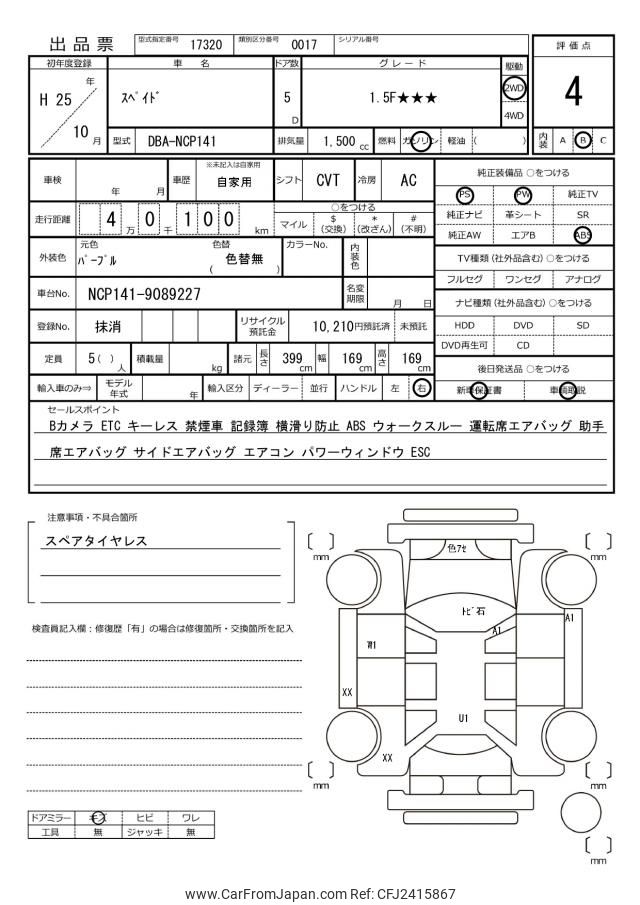 出品票 型式指定番号 17320 類別区分番号 0017 シリアル番号
評価点
4
初年度登録 車名 ドア数 グレード 駆動
H 25 年 10 月 スペイド 5 D 1.5F★★★ 2WD 4WD
型式 DBA-NCP141 排気量 1,500 cc 燃料 ガソリン 軽油 ( )
内装 A B C
車検 年 月 車歴 ※未記入は自家用 自家用 シフト CVT 冷房 AC
純正装備品 ○をつける
PS PW 純正TV
純正ナビ 革シート SR
純正AW エアB ABS
走行距離 4 万 0 千 1 0 0 km
○をつける
マイル $ (交換) * (改ざん) # (不明)
外装色 元色 パープル 色替 ( 色替無 ) カラーNo. 内装色
TV種類 (社外品含む) ○をつける
フルセグ ワンセグ アナログ
車台No. NCP141-9089227 名変期限 月 日
ナビ種類 (社外品含む) ○をつける
HDD DVD SD
DVD再生可 CD
登録No. 抹消 リサイクル預託金 10,210円預託済 未預託
定員 5( ) 人 積載量 kg 諸元 長さ 399 cm 幅 169 cm 高さ 169 cm
後日発送品 ○をつける
新車保証書 車輌取説
輸入車のみ⇒ モデル年式 年 輸入区分 ディーラー 並行 ハンドル 左 右
セールスポイント
Bカメラ ETC キーレス 禁煙車 記録簿 横滑り防止 ABS ウォークスルー 運転席エアバッグ 助手
席エアバッグ サイドエアバッグ エアコン パワーウィンドウ ESC
注意事項・不具合箇所
スペアタイヤレス
検査員記入欄：修復歴「有」の場合は修復箇所・交換箇所を記入
mm
mm
色アセ
トビ石
A1
A1
XX
U1
XX
mm
mm
mm
ドアミラー キズ ヒビ ワレ
工具 無 ジャッキ 無
www.CarFromJapan.com Ref: CFJ2415867